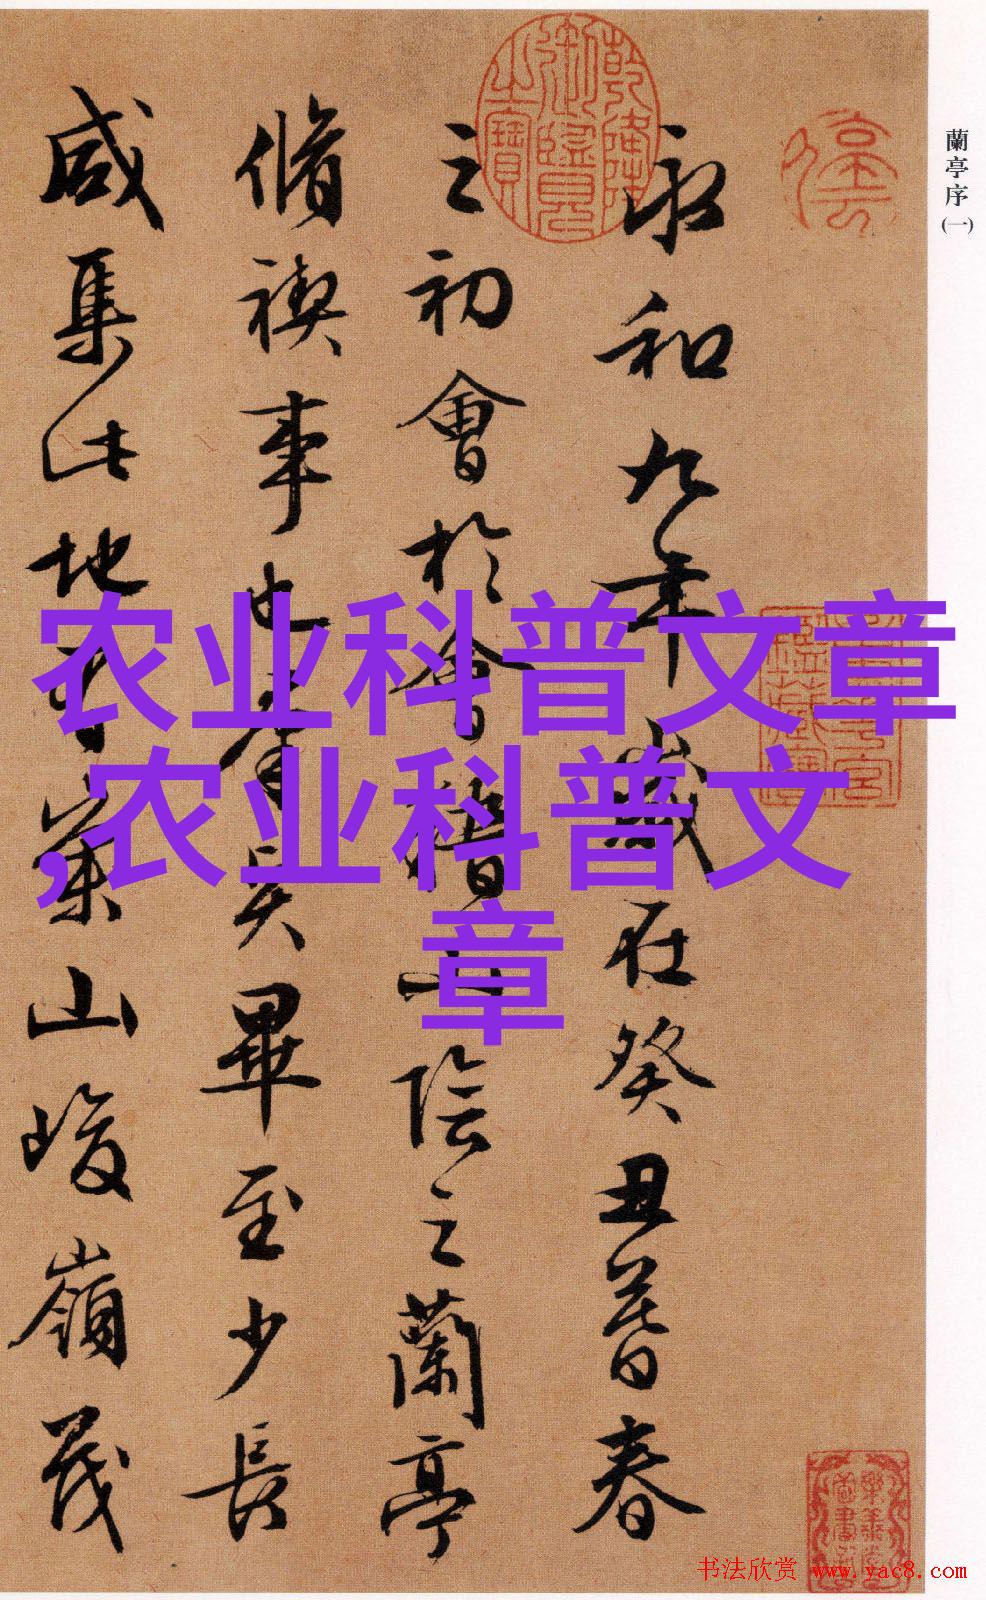 蘭亭序
(一)
永和九年歲在癸丑暮春
之初會於會稽山陰之蘭亭
脩禊事也羣賢畢至少長
咸集此地有崇山峻嶺茂
乾隆御覽之寶
農业科普文章
,农业科普文
章
书法欣赏 www.yac8.com